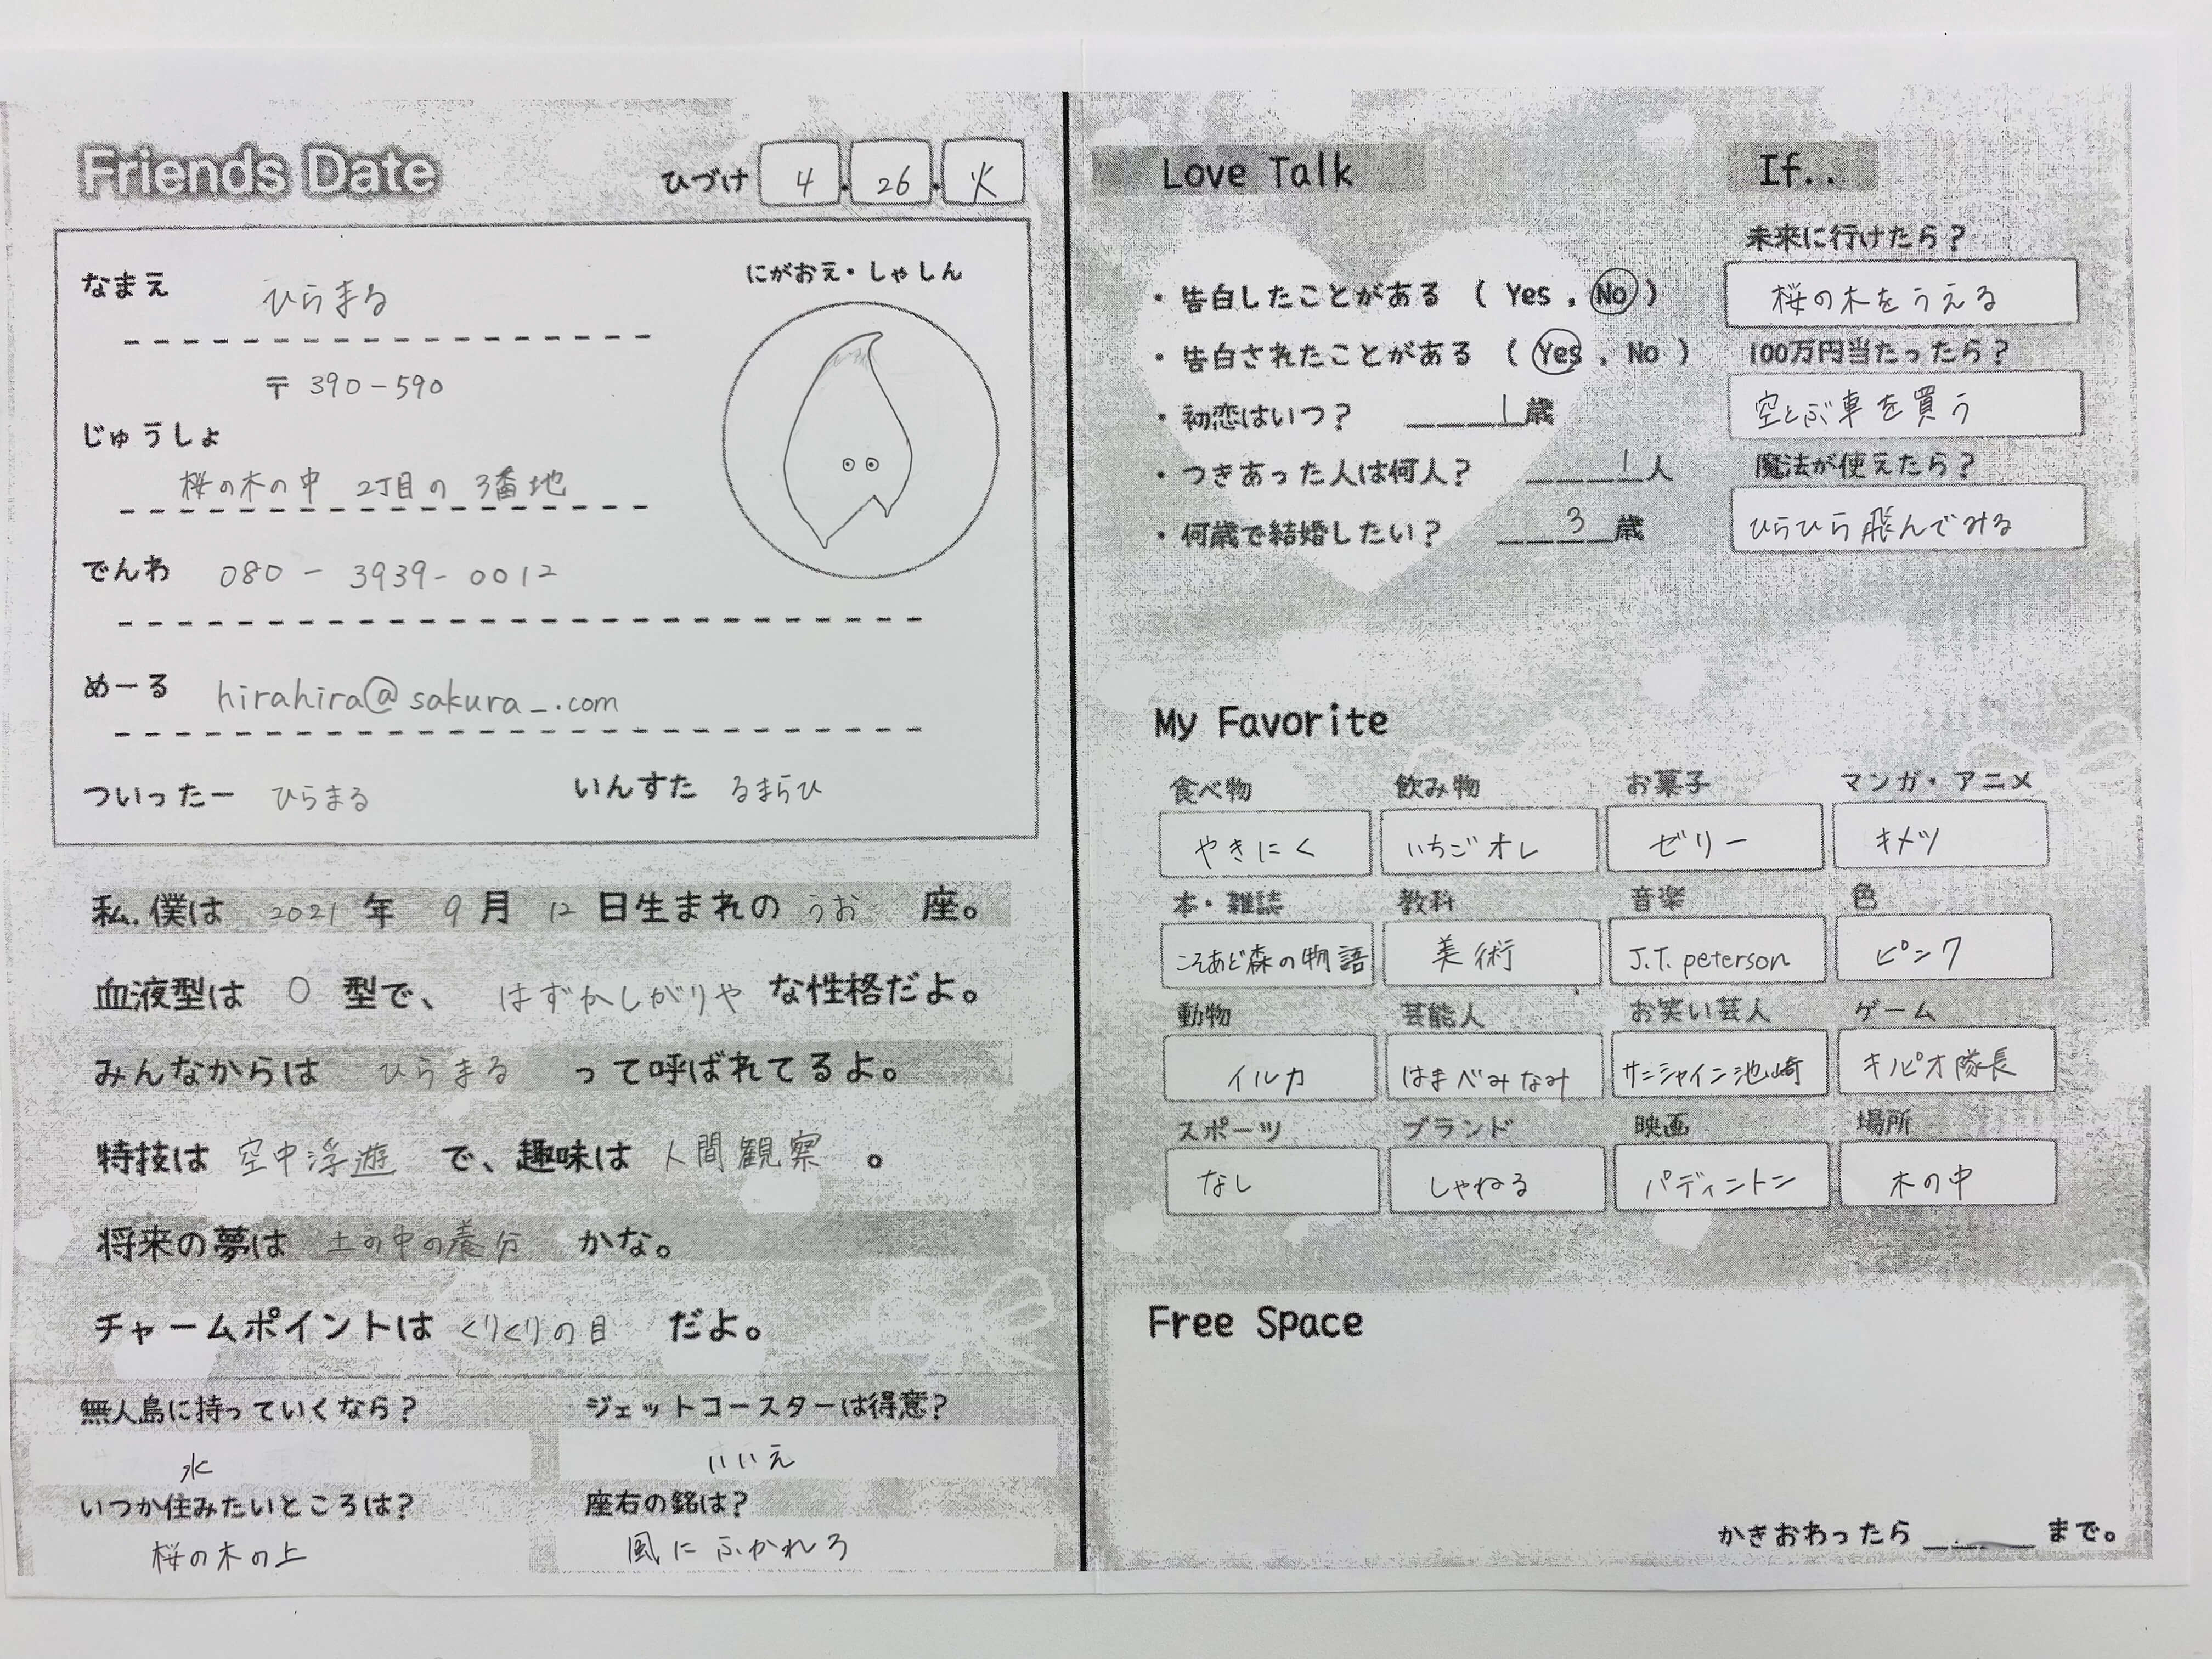 Friends Date
ひづけ 4.26.火
なまえ ひらまる
にがおえ・しゃしん
〒390-590
じゅうしょ
桜の木の中 2丁目の 3番地
でんわ 080-3939-0012
めーる hirahira@sakura_.com
ついったー ひらまる いんすた るまらひ
私、僕は 2021 年 9 月 12 日生まれの うお 座。
血液型は O 型で、 はずかしがりや な性格だよ。
みんなからは ひらまる って呼ばれてるよ。
特技は 空中浮遊 で、趣味は 人間観察 。
将来の夢は 土の中の養分 かな。
チャームポイントは くりくりの目 だよ。
無人島に持っていくなら? ジェットコースターは得意?
水 いいえ
いつか住みたいところは? 座右の銘は?
桜の木の上 風にふかれろ
Love Talk
・告白したことがある ( Yes , No )
・告白されたことがある ( Yes , No )
・初恋はいつ? 1歳
・つきあった人は何人? 1人
・何歳で結婚したい? 3歳
If..
未来に行けたら?
桜の木をうえる
100万円当たったら?
空とぶ車を買う
魔法が使えたら?
ひらひら飛んでみる
My Favorite
食べ物 飲み物 お菓子 マンガ・アニメ
やきにく いちごオレ ゼリー キメツ
本・雑誌 教科 音楽 色
こそあど森の物語 美術 J.T. peterson ピンク
動物 芸能人 お笑い芸人 ゲーム
イルカ はまべみなみ サンシャイン池崎 キノピオ隊長
スポーツ ブランド 映画 場所
なし しゃねる パディントン 木の中
Free Space
かきおわったら ____ まで。